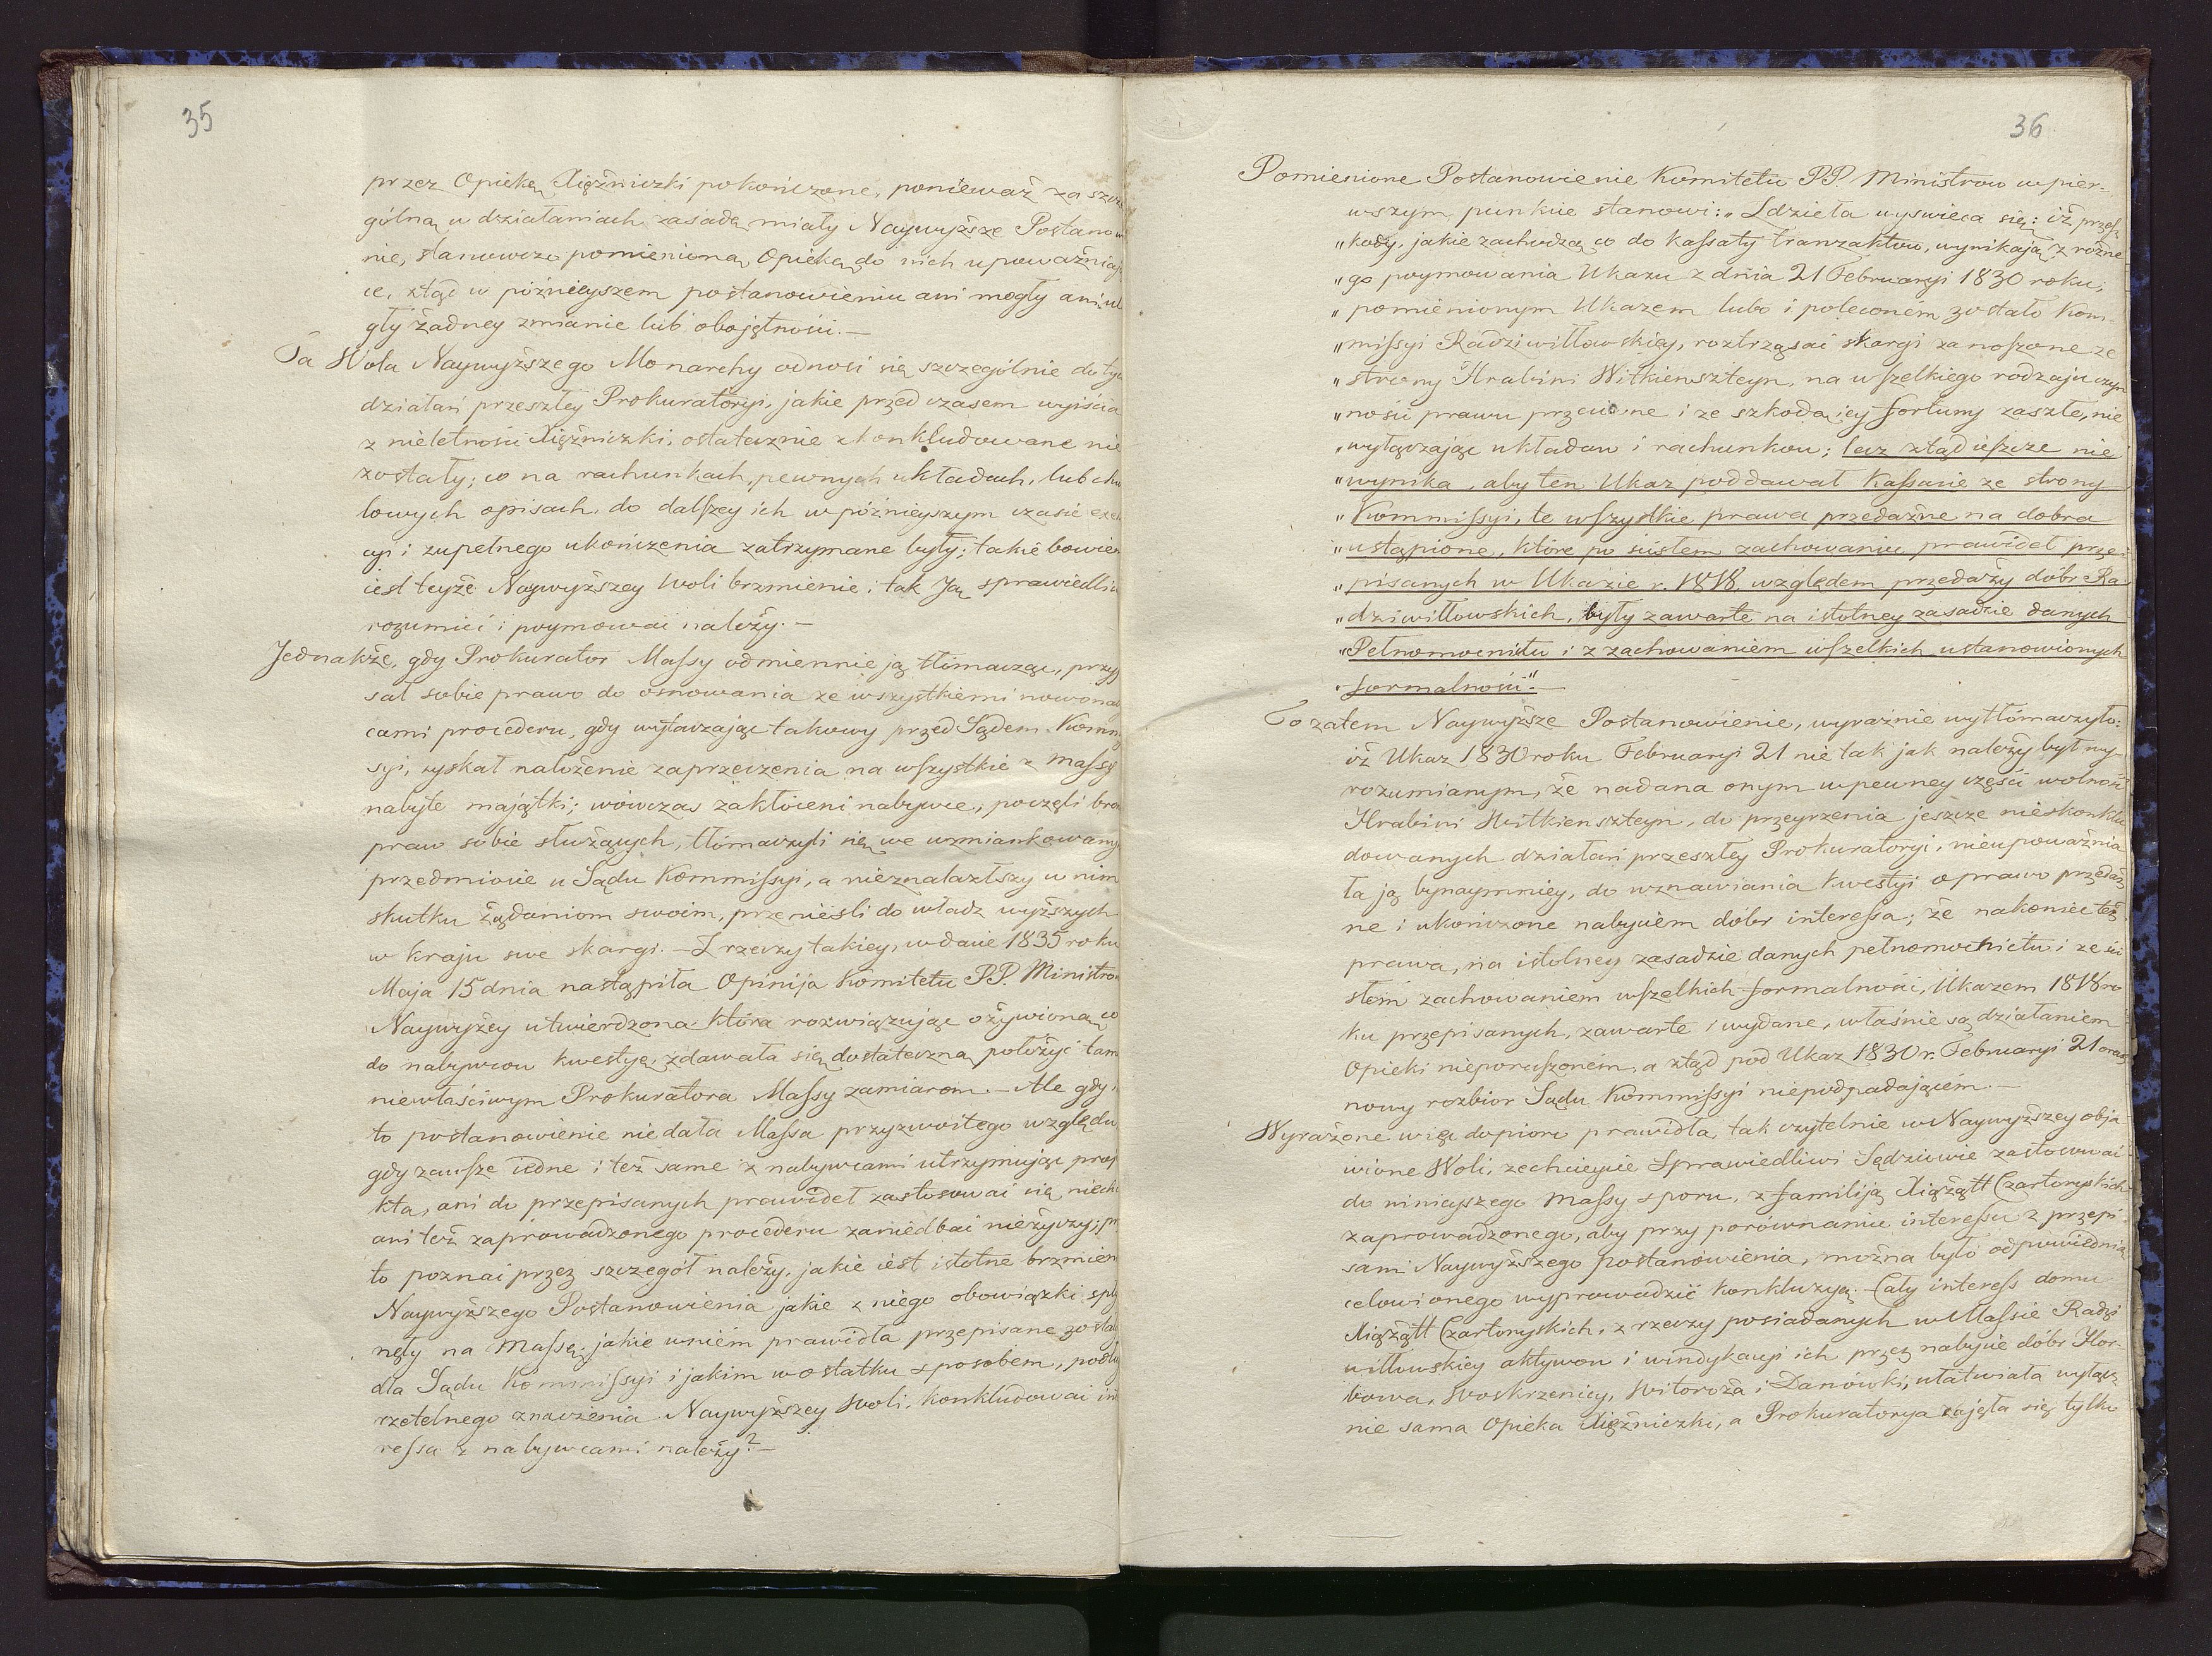 35
przez Opiekę Xiężniczki pokończone, ponieważ za szcze
gólną w działaniach zasadę miały Naywyższe Postanow
nie, stanowczo pomienioną Opiekę do nich upoważniają
ce, ztąd w późnieyszem postanowieniu ani mogły ani ule
gły żadney zmianie lub obojętności. —
Ta Wola Naywyższego Monarchy odnosi się szczególnie do tyc
działań przeszłey Prokuratoryi, jakie przed czasem wyiścia
z nieletności Xiężniczki, ostatecznie zkonkludowane nie
zostały; co na rachunkach, pewnych układach, lub
lowych opisach, do dalszey ich w późnieyszym czasie exek
cyi i zupełnego ukończenia zatrzymane były; takie bowiem
iest teyże Naywyższey Woli brzmienie; tak Ją sprawiedliw
rozumieć i poymować należy. —
Jednakże, gdy Prokurator Massy odmiennie ją tłómacząc, przyp
sał sobie prawo do osnowania ze wszystkiemi nowonab
cami procederu, gdy wytaczając takowy przed Sądem Kommi
syi, zyskał nałożenie zaprzeczenia na wszystkie z Massy
nabyte majątki; wówczas zakłóceni nabywce, poczęli bron
praw sobie służących, tłómaczyli się we wzmiankowany
przedmiocie u Sądu Kommissyi, a nieznalazłszy w nim
skutku żądaniom swoim, przenieśli do władz wyższych
w kraju swe skargi. — Z rzeczy takiey, w dacie 1835 roku
Maja 15 dnia nastąpiła Opinija Komitetu PP. Ministrow
Naywyżey utwierdzona która rozwiązując ożywioną co
do nabywcow kwestyę, zdawała się dostateczną położyć tam
niewłaściwym Prokuratora Massy zamiarom. — Ale gdy i
to postanowienie niedała Massa przyzwoitego względu
gdy zawsze iedne i też same z nabywcami utrzymując proj
kta, ani do przepisanych prawideł zastosować się niech
ani też zaprowadzonego procederu zaniedbać nieżyczy; prz
to poznać przez szczegół należy, jakie iest istotne brzmien
Naywyższego Postanowienia jakie z niego obowiązki spły
nęły na Massę, jakie w niém prawidła przepisane zostały
dla Sądu Kommissyi i jakim w ostatku sposobem, podłu
rzetelnego znaczenia Naywyższey Woli, konkludować inte
ressa z nabywcami należy? —
36
Pomienione Postanowienie Komitetu PP. Ministrow w pier-
wszym punkcie stanowi: „Z dzieła wyswieca się: iż przesz
„kody, jakie zachodzą co do kassaty tranzaktow, wynikają z rożne
„go poymowania Ukazu z dnia 21 Februaryi 1830 roku;
„pomienionym Ukazem lubo i poleconém zostało Kom-
„missyi Radziwiłłowskiey, roztrząsać skargi zanoszone ze
„strony Hrabini Witkienszteyn, na wszelkiego rodzaju czyn
„ności prawu przeciwne i ze szkodą iey fortuny zaszłe, nie
„wyłączając układow i rachunkow; lecz ztąd ieszcze nie
„wynika, aby ten Ukaz poddawał Kassacie ze strony
„Kommissyi, te wszystkie prawa przedażne na dobra
„ustąpione, które po ścisłem zachowaniu prawideł prze-
„pisanych w Ukazie r. 1818. względem przedaży dóbr Ra-
„dziwiłłowskich, były zawarte na istotney zasadzie danych
„Pełnomocnictw i z zachowaniem wszelkich ustanowionych
„formalności.“ —
To zatem Naywyższe Postanowienie, wyraźnie wytłómaczyło:
iż Ukaz 1830 roku Februaryi 21 nie tak jak należy był wy-
rozumianym, że nadana onym w pewney części wolność
Hrabini Witkienszteyn, do przeyrzenia jeszcze nieskonklu
dowanych działań przeszłey Prokuratoryi, nieupoważnia
ła ją bynaymniey, do wznawiania kwestyi o prawo przedaż
ne i ukończone nabyciem dóbr interessa; że nakoniec też
prawa, na istotney zasadzie danych pełnomocnictw i ze ści
słém zachowaniem wszelkich formalności, Ukazem 1818 ro
ku przepisanych, zawarte i wydane, właśnie są działaniem
Opieki nieporuszoném, a ztąd pod Ukaz 1830 r. Februaryi 21 oraz
nowy rozbior Sądu Kommissyi niepodpadającém. —
Wyrażone więc dopioro prawidła, tak czytelnie w Naywyższey obja-
wione Woli, zechcieycie Sprawiedliwi Sędziowie zastosować
do ninieyszego Massy sporu, z familiją Xiążątt Czartoryskich
zaprowadzonego, aby przy porównaniu interessu z przepi-
sami Naywyższego postanowienia, można było odpowiednią
celowi onego wyprowadzić konkluzyą. — Cały interess domu
Xiążątt Czartoryskich, z rzeczy posiadanych w Massie Radzi
wiłłowskiey aktywow i windykacyi ich przez nabycie dóbr Hor-
bowa, Woskrzenicy, Witoroża i Danówki, ułatwiała wyłącz
nie sama Opieka Xiężniczki, a Prokuratorya zajęła się tylko